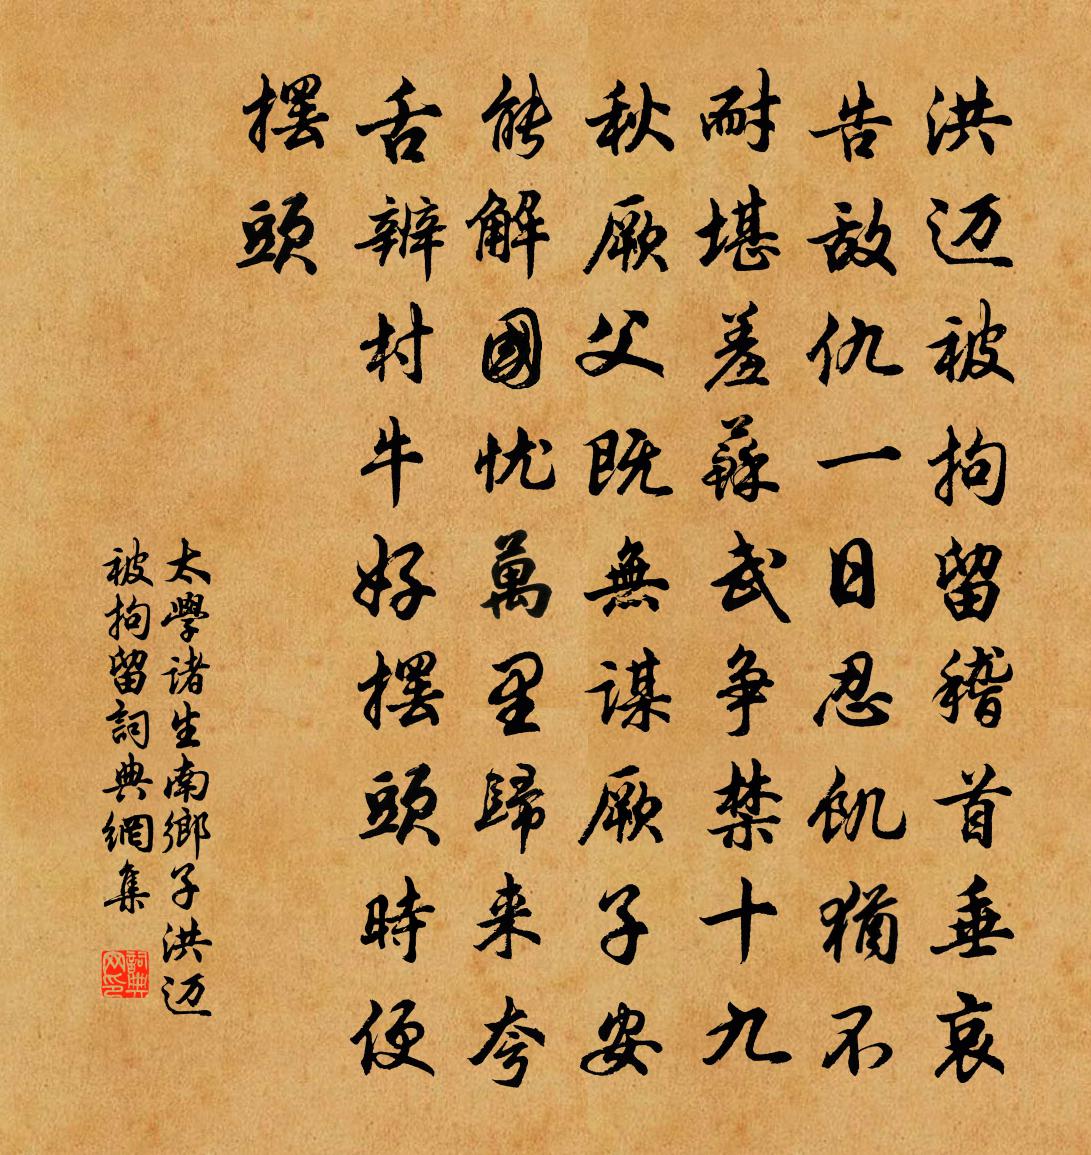 洪迈被拘留稽首垂哀
告敌仇一日忍饥犹不
耐堪羞蘇武争禁十九
秋厥父既無谋厥子安
能解國忧萬里歸来夸
舌辨村牛好摆頭時便
摆頭
太學诸生南鄉子洪迈
被拘留詞典網集
詞典网印